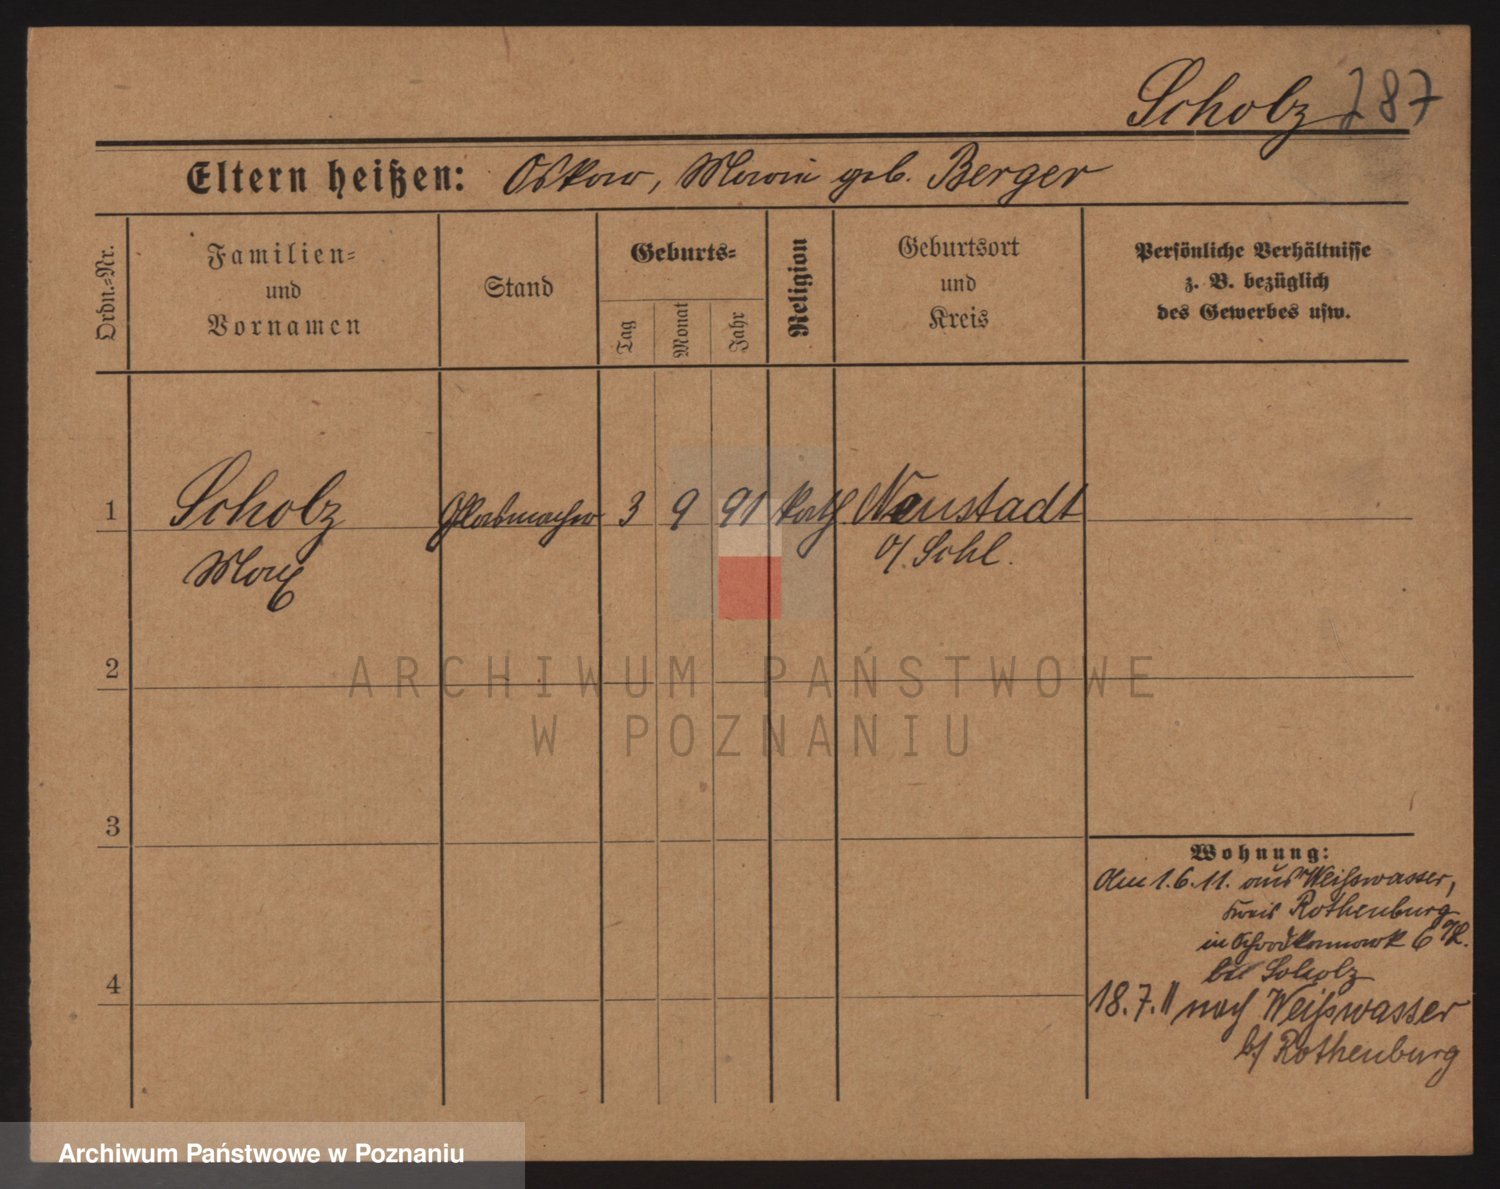 Scholz 287
Eltern heißen: Oskar, Marie geb. Berger
Ordn.-Nr.
Familien-
und
Vornamen
Stand
Geburts-
Tag
Monat
Jahr
Religion
Geburtsort
und
Kreis
Persönliche Verhältnisse
z. B. bezüglich
des Gewerbes usw.
1 Scholz Glasmacher 3 9 91 kath Neustadt
Max O/. Schl.
2
ARCHIWUM PAŃSTWOWE
W POZNANIU
3
Wohnung:
Am 1.6.11. aus Weißwasser,
Kreis Rothenburg
in
bei Scholz
4
18.7.11 nach Weißwasser
b/ Rothenburg
Archiwum Państwowe w Poznaniu